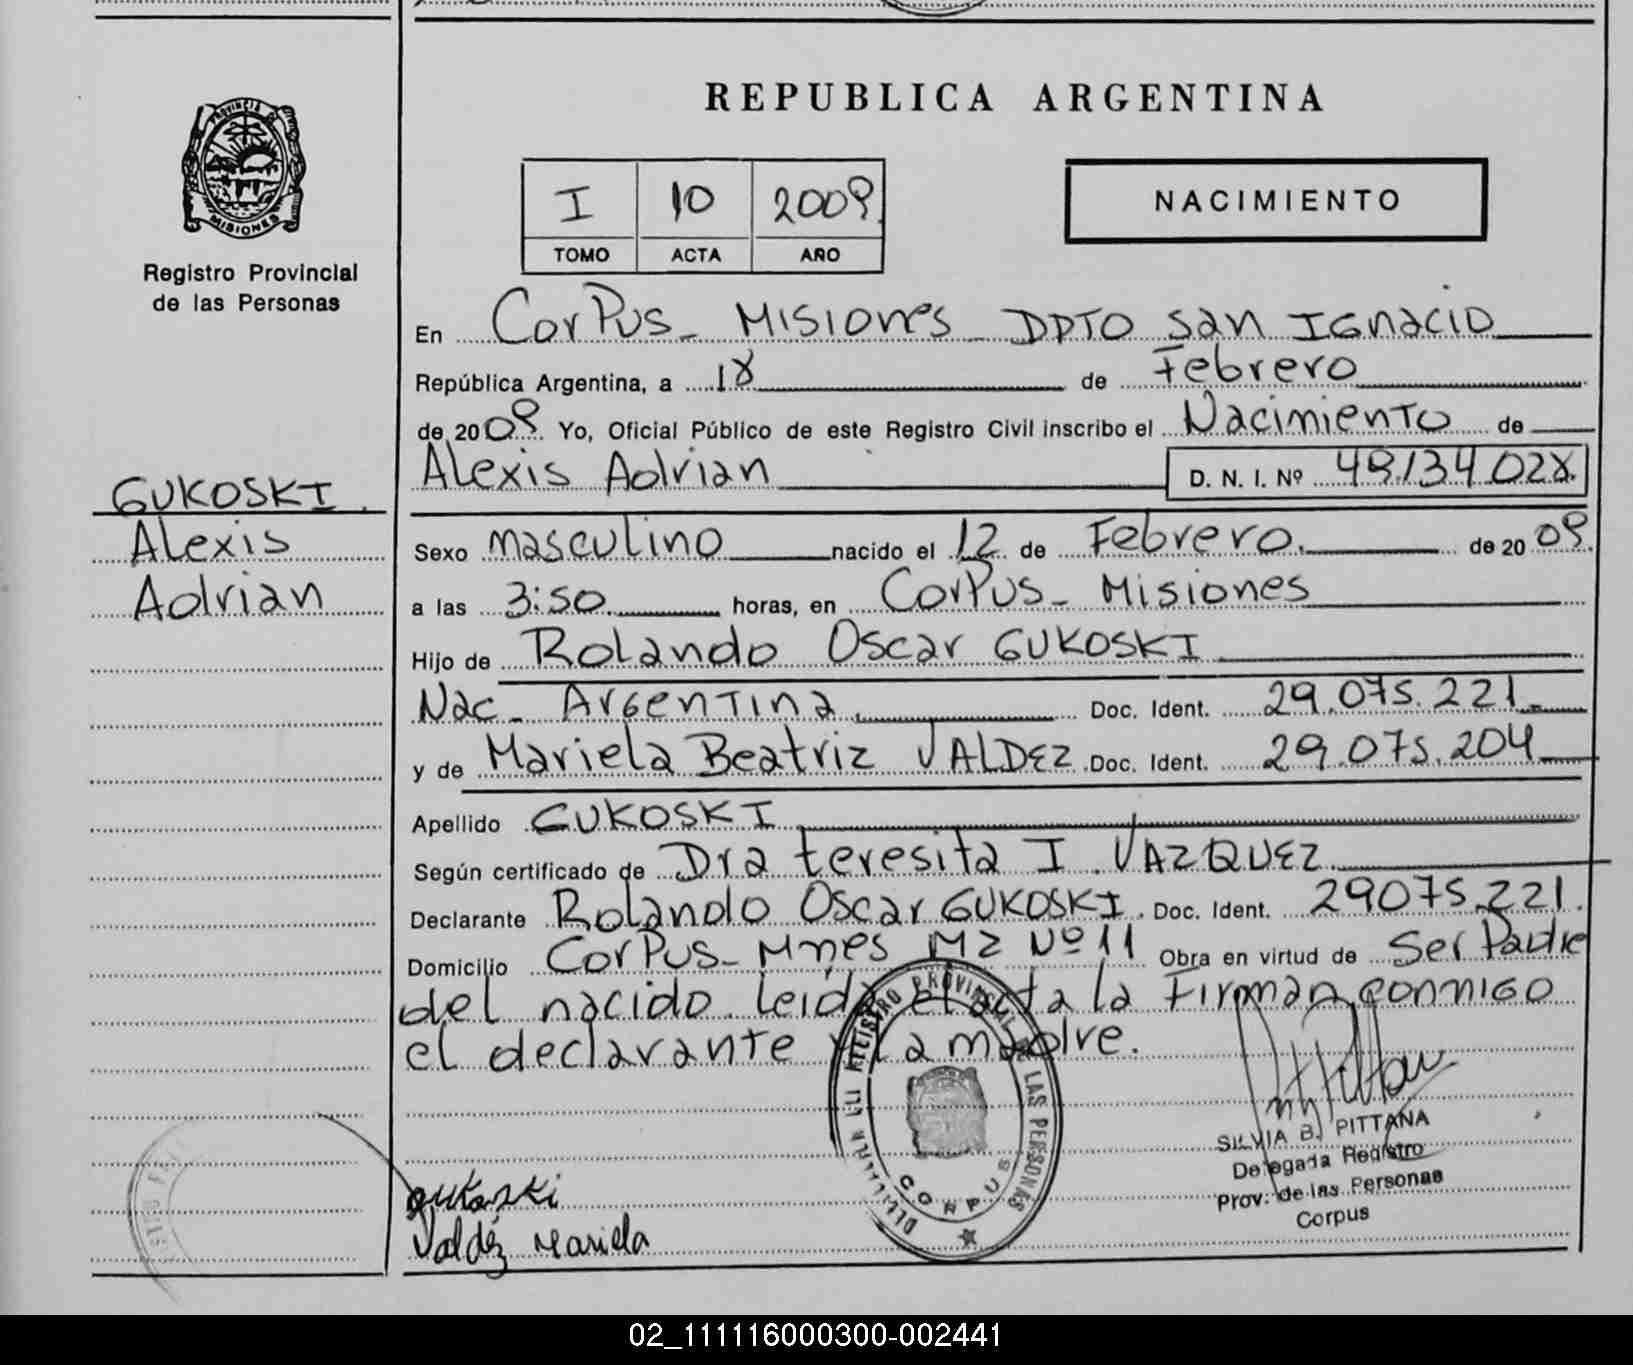 REPUBLICA ARGENTINA
PROVINCIA DE
MISIONES
Registro Provincial
de las Personas
I 10 2009
TOMO ACTA AÑO
NACIMIENTO
En Corpus_ Misiones_ DPTO San Ignacio
República Argentina, a 18 de Febrero
de 2009. Yo, Oficial Público de este Registro Civil inscribo el Nacimiento de
Alexis Adrian D. N. I. Nº 49.134.028.
GUKOSKI.
Alexis
Adrian
Sexo masculino nacido el 12 de Febrero. de 2009.
a las 3:50 horas, en Corpus_ Misiones
Hijo de Rolando Oscar GUKOSKI
Nac_ Argentina Doc. Ident. 29.075.221_
y de Mariela Beatriz VALDEZ Doc. Ident. 29.075.204
Apellido GUKOSKI
Según certificado de Dra teresita I VAZQUEZ
Declarante Rolando Oscar GUKOSKI. Doc. Ident. 29075.221.
Domicilio Corpus_ Mnes Mz Nº 11 Obra en virtud de Ser Padre
del nacido. leída el acta la Firman conmigo
el declarante y la madre.
REGISTRO PROVINCIAL DE LAS PERSONAS
CORPUS
SILVIA B. PITTANA
Delegada Registro
Prov. de las Personas
Corpus
Gukoski
Valdéz Mariela
02_111116000300-002441